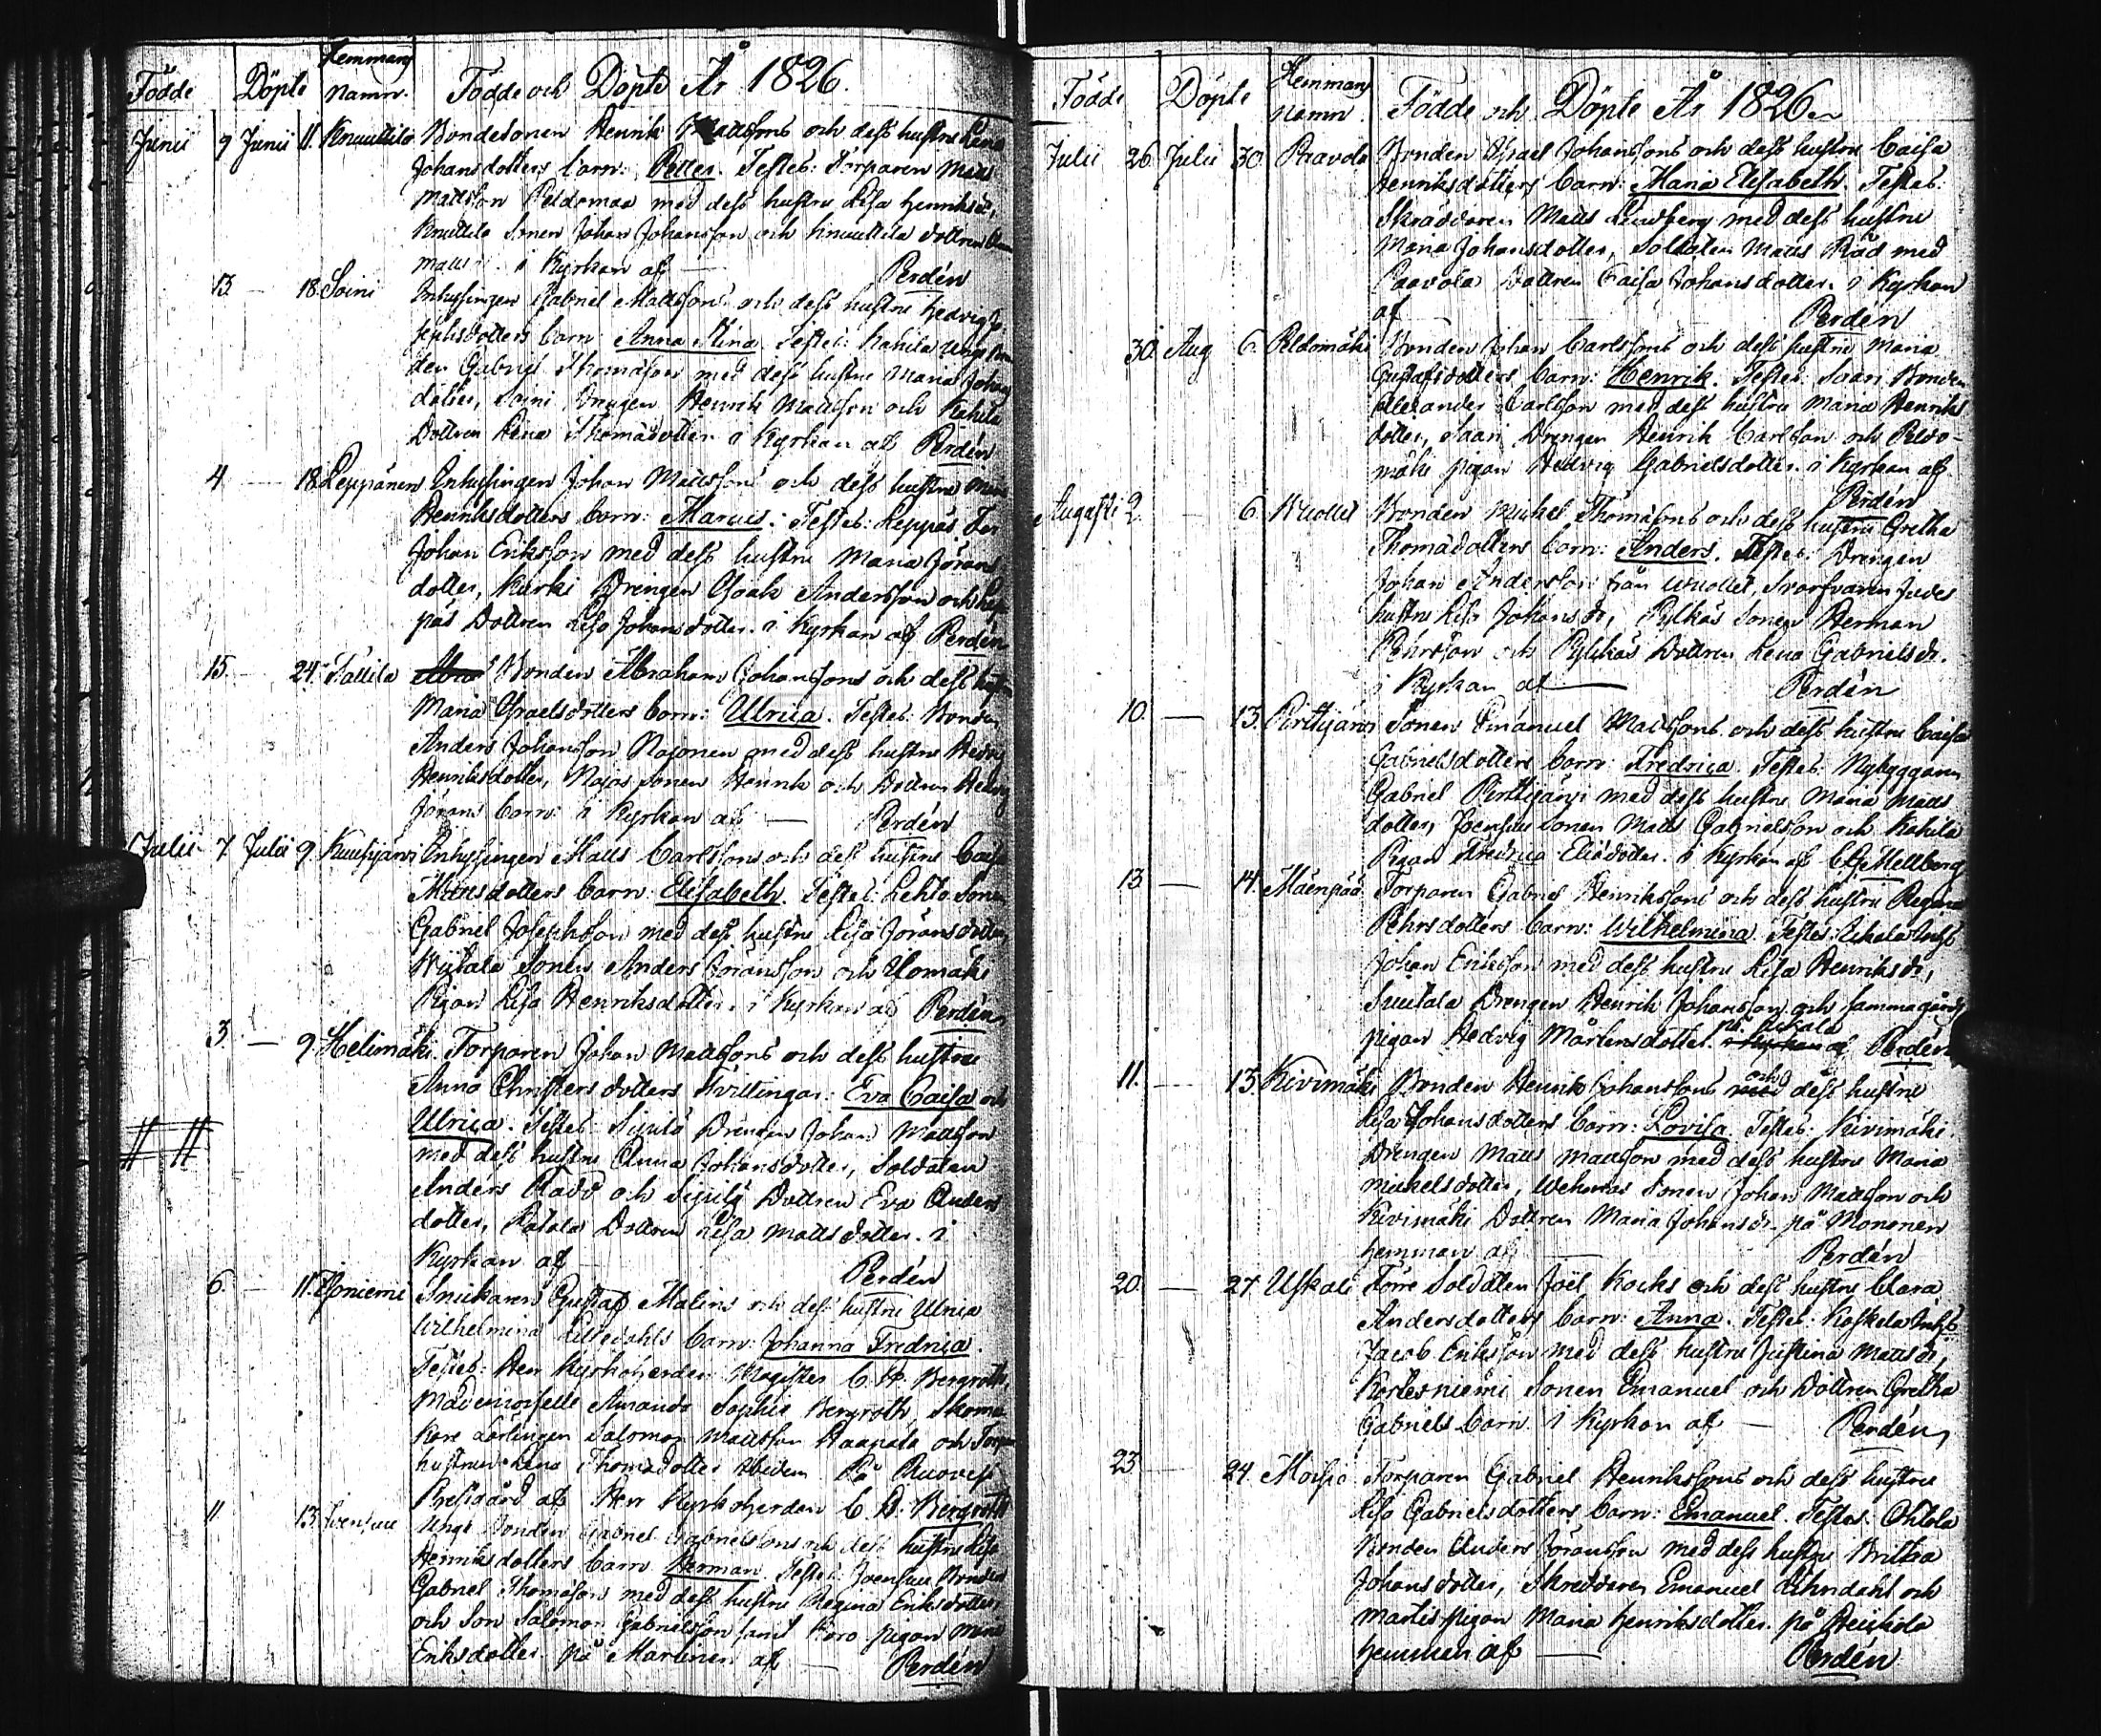 Födde Döpte Hemmans namn. Födde och Döpte År 1826.
Junii 9 Junii 11. Knuuttila Bondesonen Henrik Mattssons och dess hustru Lena
Johansdotters barn: Petter. Testes: Torparen Matts
Mattsson Peldomaa med dess hustru Lisa Henriksd.,
Knuttila Sonen Johan Johansson och Knuuttila dottren
i Kyrkan af — Perdén
13. — 18. Soini Inhysingen Gabriel Mattssons och dess hustru Hedvig Jo-
sephsdotters barn: Anna Stina. Testes: Kahila unge Bon
den Gabriel Thomasson med dess hustru Maria Johans
dotter, Soini Drengen Henrik Mattsson och Kahila
Dottren Lena Thomasdotter i Kyrkan af Perdén
4 — 18. Leppänen Inhysingen Johan Mattssons och dess hustru
Henriksdotters barn: Marcus. Testes: Leppäs
Johan Eriksson med dess hustru Maria Jörans
dotter, Kurki Drengen Isaak Andersson och Lep
päs Dottren Lisa Johansdotter. i Kyrkan af Perdén
15. — 24. Fallila Bonden Abraham Johanssons och dess hustru
Maria Israelsdotters barn: Ulrica. Testes: Bonden
Anders Johansson Nojonen med dess hustru Hedvig
Henriksdotter, Nojos Sonen Henrik och Dottren Hedvig
Jörans barn i Kyrkan af — Perdén
Julii 7. Julii 9. Kuusijärvi Inhysingen Matts Carlssons och dess hustru Caisa
Månsdotters barn: Elisabeth. Testes: Lehto Sonen
Gabriel Josephsson med dess hustru Lisa Jöransdotter,
Wiitala Sonen Anders Jöransson och Ylömäki
Pigan Lisa Henriksdotter. i Kyrkan af Perdén
3. — 9. Helimäki Torparen Johan Mattssons och dess hustru
Anna Christersdotters Tvillingar: Eva Caisa och
Ulrica. Testes: Sipilä Drengen Johan Mattsson
med dess hustru Anna Johansdotter, Soldaten
Anders Rådd och Sipilä Dottren Eva Anders
dotter, Ratala Dottren Lisa Mattsdotter. i
Kyrkan af Perdén
6. — 11. Snickaren Gustaf Malins och dess hustru Ulrica
Wilhelmina barn: Johanna Fredrica.
Testes: Herr Kyrkoherden Magister C. H. Bergroth,
Mademoiselle Amanda Sophia Bergroth, Skoma
kare Lärlingen Salomon Mattsson Haapala och
hustrun Lena Thomasdotter ibidem På Ruovesi
Prestgård af Herr Kyrkoherden C. H. Bergroth
11 13. Joensuu Unge Bonden Gabriel Gabrielssons och dess hustru Lisa
Henriksdotters barn Herman. Testes: Joensuu Bonden
Gabriel Thomasson med dess hustru Regina Eriksdotter,
och Son Salomon Gabrielsson samt Koro pigan
Eriksdotter på Martinen af — Perdén
Födde Döpte Hemmans namn. Födde och Döpte År 1826.
Julii 26. Julii 30. Paavola Bonden Israel Johanssons och dess hustru Caisa
Henriksdotters barn: Maria Elisabeth. Testes:
Skräddaren Matts Lindberg med dess hustru
Maria Johansdotter, Soldaten Matts Råd med
Paavola Dottren Caisa Johansdotter. i Kyrkan
af Perdén
30. Aug 6. Peldomäki Bonden Johan Carlssons och dess hustru Maria
Gustafsdotters barn: Henrik. Testes: Saari Bonden
Alexander Carlsson med dess hustru Maria Henriks
dotter, Saari Drengen Henrik Carlsson och Peldo-
mäki pigan Hedvig Gabrielsdotter. i Kyrkan af
Perdén
Augusti 2. — 6. Wuollet Bonden Michel Thomassons och dess hustru Gretha
Thomasdotters barn: Anders. Testes: Drengen
Johan Andersson från Wuollet, Svarfvaren
hustru Lisa Johansdr, Pylkäs Sonen Herman
Pehrsson och Pylkäs Dottren Lena Gabrielsdr.
i Kyrkan af — Perdén
10. — 13. Pirttijärvi Sonen Emanuel Mattssons och dess hustru Caisa
Gabrielsdotters barn: Fredrica. Testes: Nybyggaren
Gabriel Pirttijärvi med dess hustru Maria Matts
dotter, Joensuu Sonen Matts Gabrielsson och Kahila
Pigan Fredrica Eliedotter. i Kyrkan af C.G. Mellberg
13 — 14. Mäenpää Torparen Gabriel Henrikssons och dess hustru Regina
Pehrsdotters barn: Wilhelmina. Testes: Ukala Inhs
Johan Eriksson med dess hustru Lisa Henriksdr,
Suutala Drengen Henrik Johansson och samma gårds
pigan Hedvig Mårtensdotter. på Ukala af Perdén
11. — 13. Kivimäki Bonden Henrik Johanssons och dess hustru
Lisa Johansdotters barn: Lovisa. Testes: Kivimäki
Drengen Matts Mattsson med dess hustru Maria
Michelsdotter, Sonen Johan Mattsson och
Kivimäki Dottren Maria Johansdr. på Mononen
hemman af — Perdén
20. — 27. Uskali Förre Soldaten Joël Kocks och dess hustru Clara
Andersdotters barn: Anna. Testes: Koskela Inhs
Jacob Eriksson med dess hustru Justina Mattsdr,
Kortesniemi Sonen Emanuel och Dottren Gretha
Gabriels barn i Kyrkan af — Perdén
23 24. Moisio Torparen Gabriel Henrikssons och dess hustru
Lisa Gabrielsdotters barn: Emanuel. Testes: Ohtola
Bonden Anders Jöransson med dess hustru Britha
Johansdotter, Skreddaren Emanuel och
Martis pigan Maria Henriksdotter. på Heickola
hemman af — Perdén